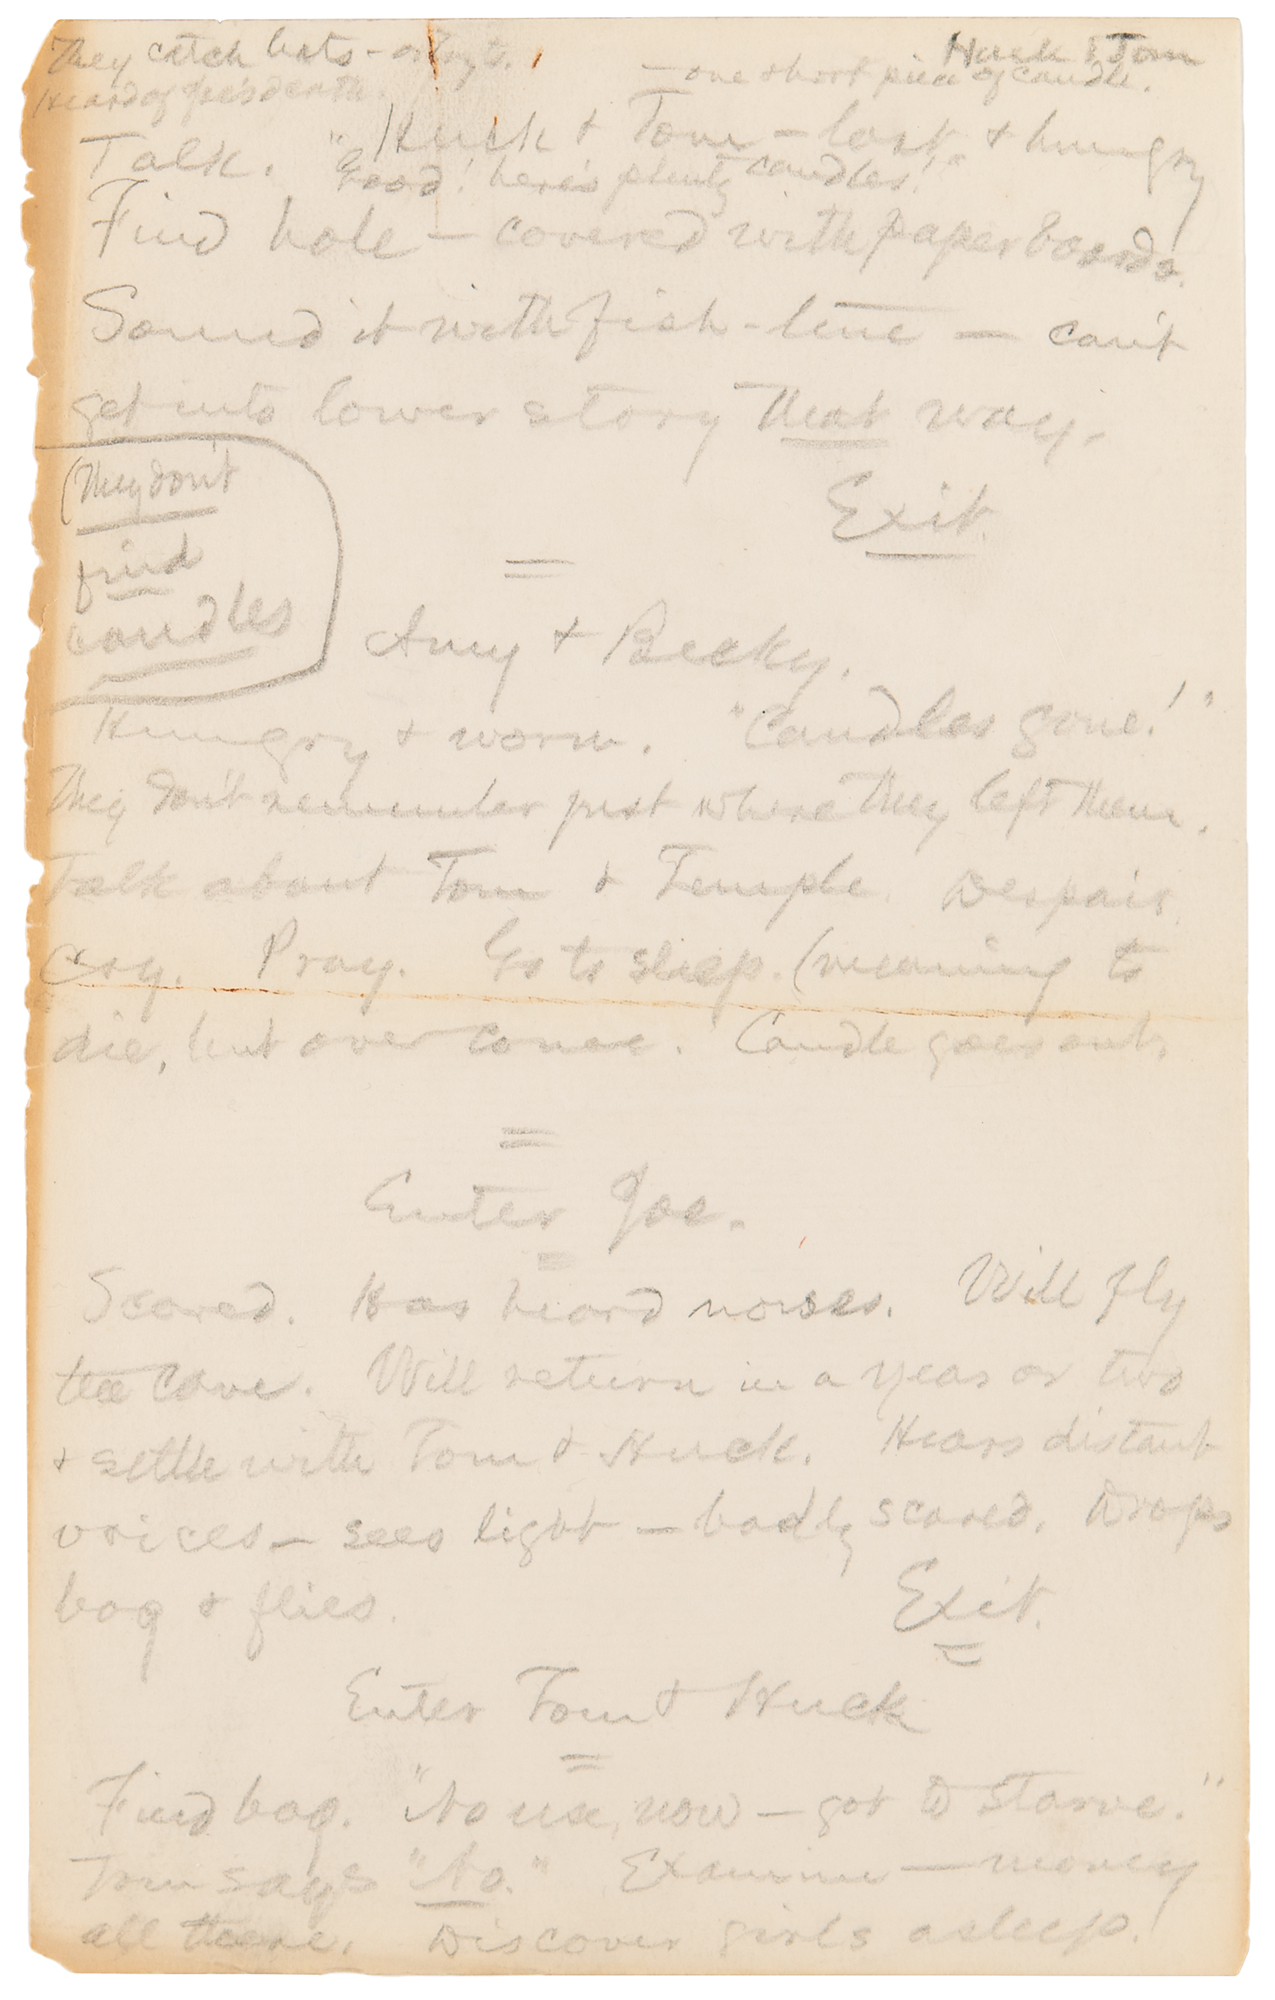 Huck & Tom
They catch bats – or try to.
– one short piece of candle.
Heard of Joe's death.
Huck & Tom – lost & hungry
Talk. "Good! here's plenty candles!"
Find hole – covered with paper boards.
Sound it with fish-line – can't
get into lower story that way.
Exit.
(They don't
find
candles
Amy & Becky.
Hungry & worn. "Candles gone!"
They don't remember just where they left them.
Talk about Tom & Temple. Despair.
Cry. Pray. Go to sleep. (meaning to
die, but overcome. Candle goes out.
Enter Joe.
Scared. Has heard noises. Will fly
the cave. Will return in a year or two
& settle with Tom & Huck. Hears distant
voices – sees light – badly scared. Drops
bag & flies.
Exit.
Enter Tom & Huck
Find bag. "No use, now – got to starve."
Tom says "No." Examine – money
all there. Discover girls asleep!